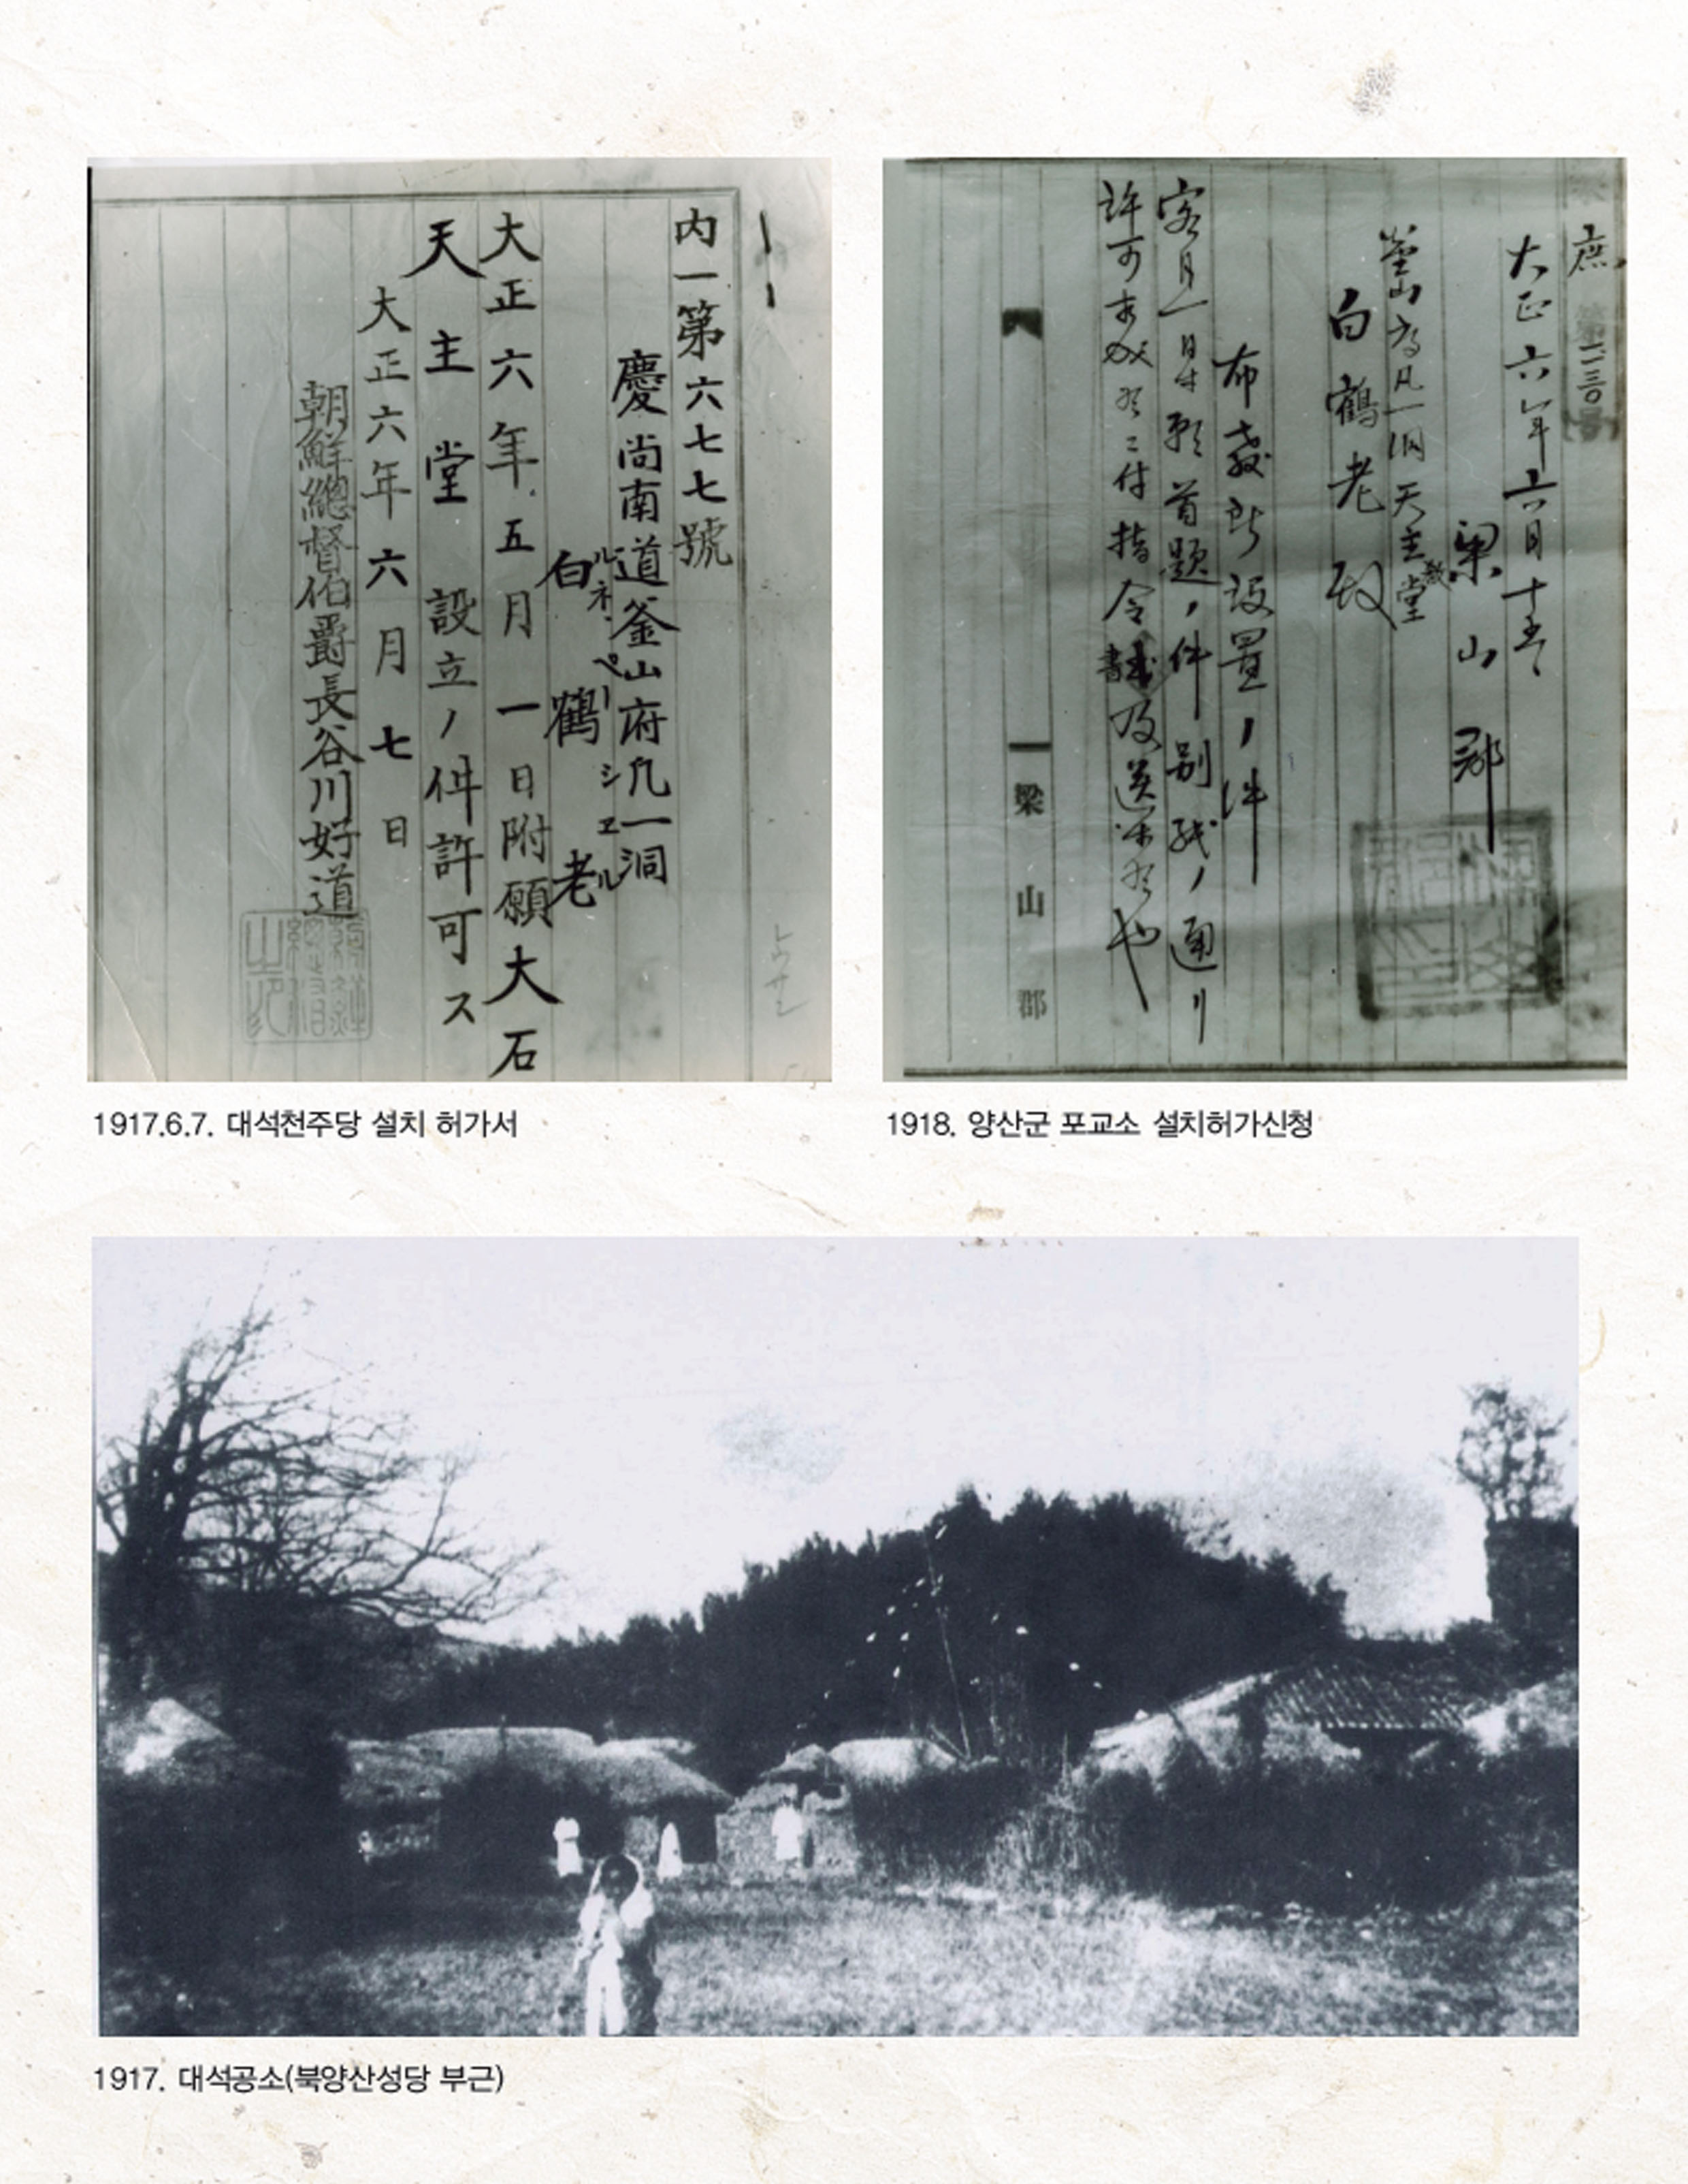 内一第六七七號
慶尚南道釜山府凡一洞
ルネ、ペーシヱル
白鶴老
大正六年五月一日附願大石
天主堂設立ノ件許可ス
大正六年六月七日
朝鮮總督伯爵長谷川好道
朝鮮總督之印
1917.6.7. 대석천주당 설치 허가서
庶第一三〇号
大正六年六月十五
梁山郡
釜山府凡一洞天主教堂
白鶴老殿
布教所設置ノ件
客月一日付願首題ノ件別紙ノ通リ
許可相成候ニ付指令書及送付候也
梁山郡
1918. 양산군 포교소 설치허가신청
1917. 대석공소(북양산성당 부근)